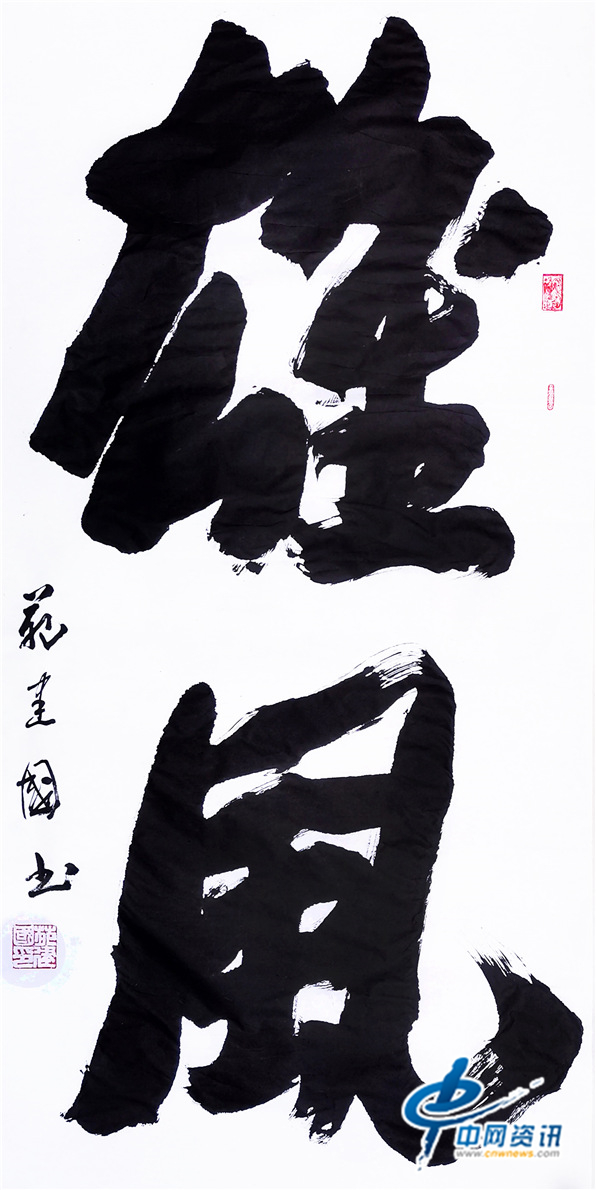 雄風
苑建國書
中网资讯
www.cnwnews.com